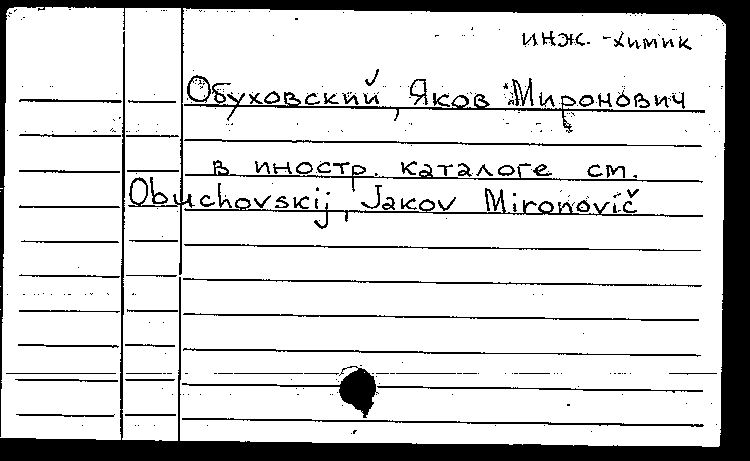 инж. -химик
Обуховский, Яков Миронович
в иностр. каталоге см.
Obuchovskij, Jakov Mironovič